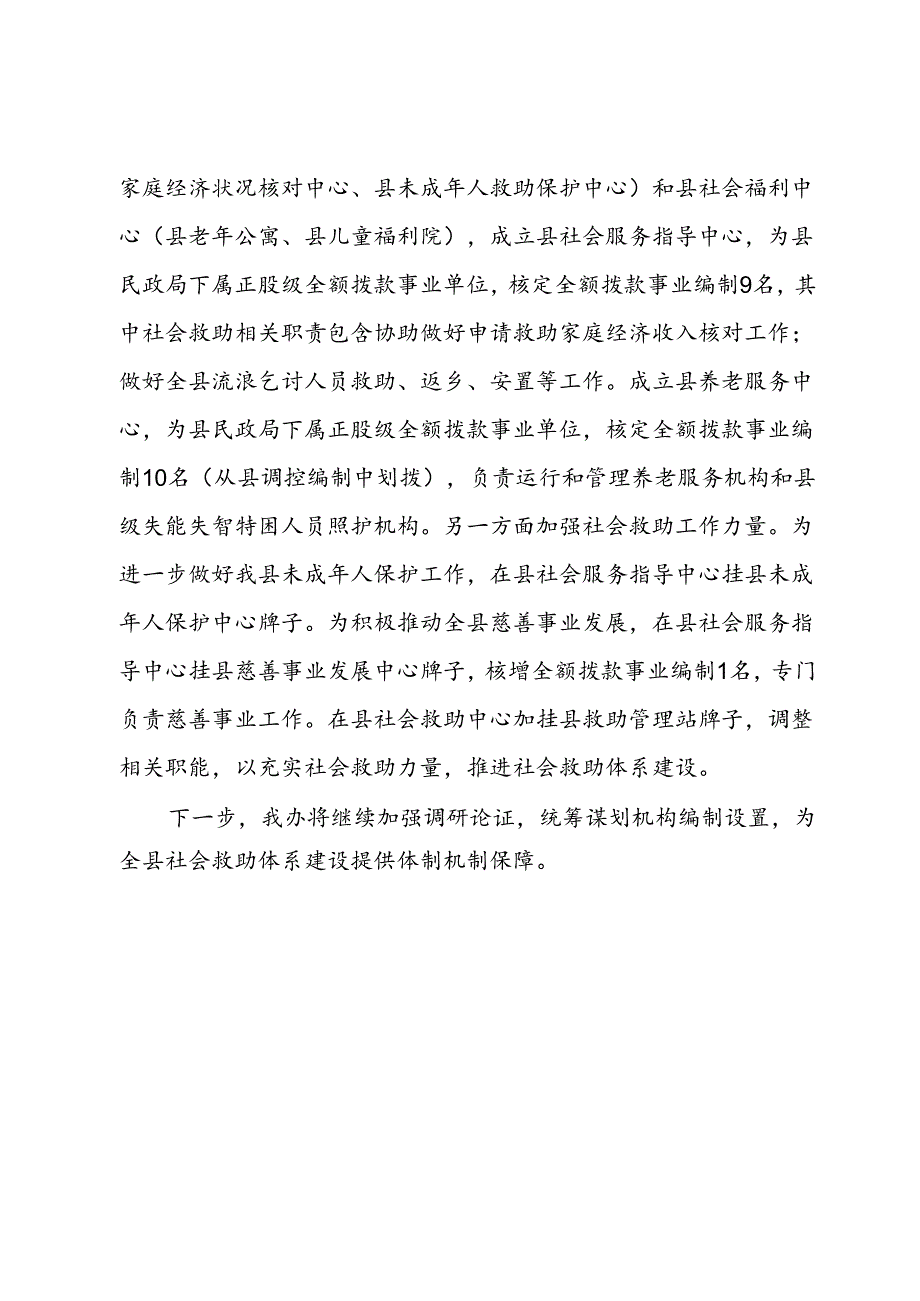 家庭经济状况核对中心、县未成年人救助保护中心）和县社会福利中
心（县老年公寓、县儿童福利院），成立县社会服务指导中心，为县
民政局下属正股级全额拨款事业单位，核定全额拨款事业编制9名，其
中社会救助相关职责包含协助做好申请救助家庭经济收入核对工作；
做好全县流浪乞讨人员救助、返乡、安置等工作。成立县养老服务中
心，为县民政局下属正股级全额拨款事业单位，核定全额拨款事业编
制10名（从县调控编制中划拨），负责运行和管理养老服务机构和县
级失能失智特困人员照护机构。另一方面加强社会救助工作力量。为
进一步做好我县未成年人保护工作，在县社会服务指导中心挂县未成
年人保护中心牌子。为积极推动全县慈善事业发展，在县社会服务指
导中心挂县慈善事业发展中心牌子，核增全额拨款事业编制1名，专门
负责慈善事业工作。在县社会救助中心加挂县救助管理站牌子，调整
相关职能，以充实社会救助力量，推进社会救助体系建设。
下一步，我办将继续加强调研论证，统筹谋划机构编制设置，为
全县社会救助体系建设提供体制机制保障。